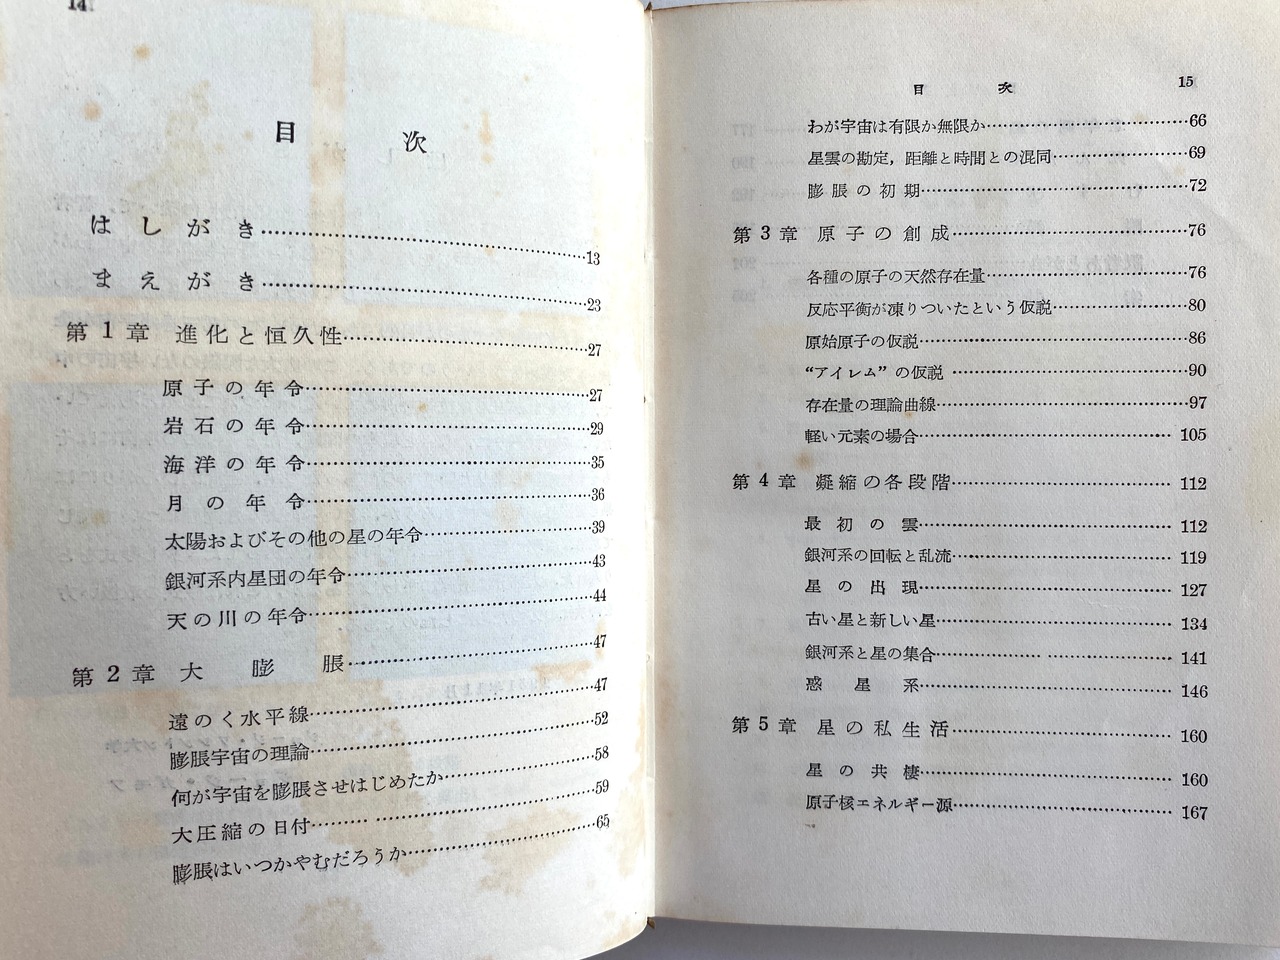 14
目次
はしがき……………………………13
まえがき……………………………23
第1章 進化と恒久性……………………27
原子の年令……………………27
岩石の年令……………………29
海洋の年令……………………35
月の年令……………………36
太陽およびその他の星の年令……………………39
銀河系内星団の年令……………………43
天の川の年令……………………44
第2章 大膨脹……………………47
遠のく水平線……………………47
膨脹宇宙の理論……………………52
何が宇宙を膨脹させはじめたか……………………58
大圧縮の日付……………………59
膨脹はいつかやむだろうか……………………65
目次 15
わが宇宙は有限か無限か……………………66
星雲の勘定，距離と時間との混同……………………69
膨脹の初期……………………72
第3章 原子の創成……………………76
各種の原子の天然存在量……………………76
反応平衡が凍りついたという仮説……………………80
原始原子の仮説……………………86
“アイレム”の仮説……………………90
存在量の理論曲線……………………97
軽い元素の場合……………………105
第4章 凝縮の各段階……………………112
最初の雲……………………112
銀河系の回転と乱流……………………119
星の出現……………………127
古い星と新しい星……………………134
銀河系と星の集合……………………141
惑星系……………………146
第5章 星の私生活……………………160
星の共棲……………………160
原子核エネルギー源……………………167